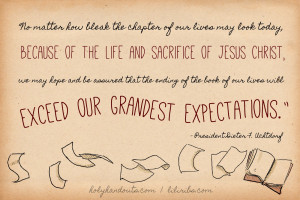 No matter how bleak the chapter of our lives may look today,
BECAUSE OF THE LIFE AND SACRIFICE OF JESUS CHRIST,
we may hope and be assured that the ending of the book of our lives will
EXCEED OUR GRANDEST EXPECTATIONS."
-President Dieter F. Uchtdorf
holyhandouts.com /